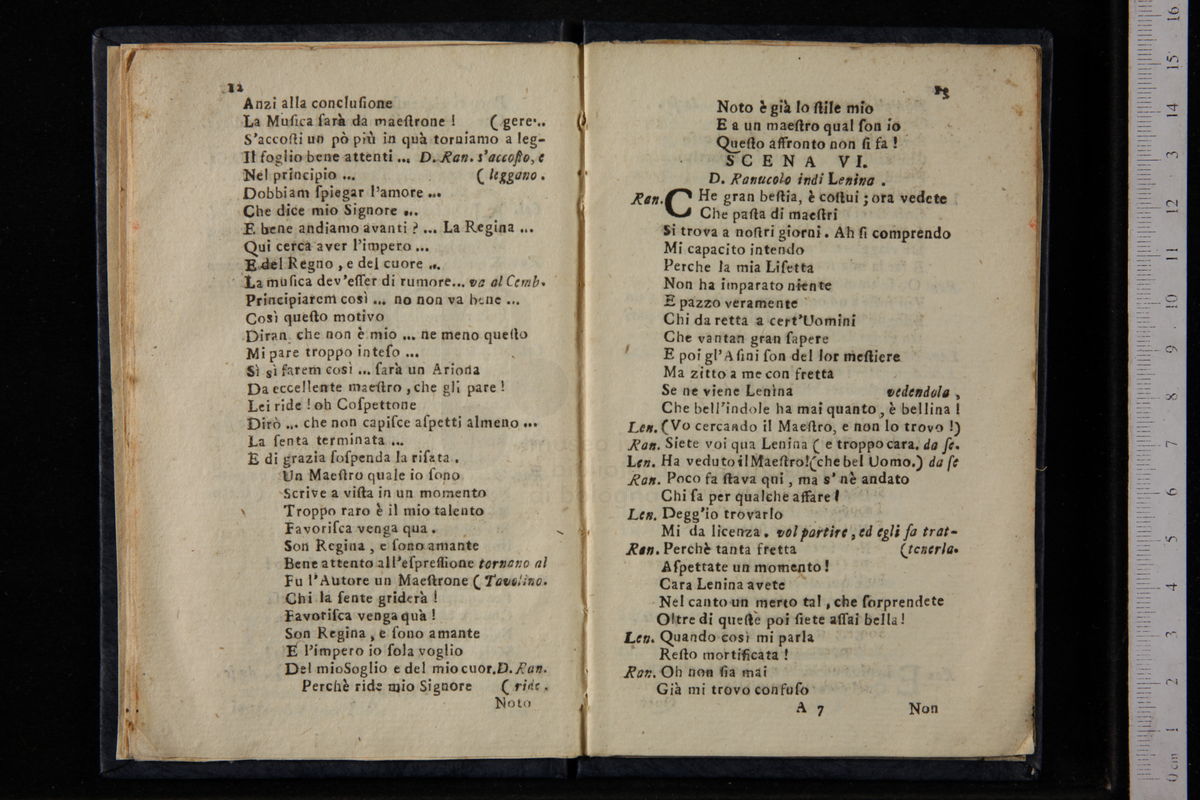 12
Anzi alla concluſione
La Muſica ſarà da maeſtrone ! ( gere...
S'accoſti un pò più in quà torniamo a leg-
Il foglio bene attenti ... D. Ran. s'accoſto, e
Nel principio ... ( leggano .
Dobbiam ſpiegar l'amore ...
Che dice mio Signore ...
E bene andiamo avanti ? ... La Regina ...
Qui cerca aver l'impero ...
E del Regno , e del cuore ...
La muſica dev'eſſer di rumore... va al Cemb.
Principiarem così ... no non va bene ...
Così queſto motivo
Diran che non è mio ... ne meno queſto
Mi pare troppo inteſo ...
Sì sì farem così ... ſarà un Ariona
Da eccellente maeſtro , che gli pare !
Lei ride ! oh Coſpettone
Dirò ... che non capiſce aſpetti almeno ...
La ſenta terminata ...
E di grazia ſoſpenda la riſata .
Un Maeſtro quale io ſono
Scrive a viſta in un momento
Troppo raro è il mio talento
Favoriſca venga qua .
Son Regina , e ſono amante
Bene attento all'eſpreſſione tornano al
Fu l'Autore un Maeſtrone ( Tavolino.
Chi la ſente griderà !
Favoriſca venga quà !
Son Regina , e ſono amante
E l'impero io ſola voglio
Del mioSoglio e del mio cuor. D. Ran.
Perchè ride mio Signore ( ride .
Noto
13
Noto è già lo ſtile mio
E a un maeſtro qual ſon io
Queſto affronto non ſi fa !
SCENA VI.
D. Ranucolo indi Lenina .
Ran. CHe gran beſtia, è coſtui ; ora vedete
Che paſta di maeſtri
Si trova a noſtri giorni . Ah ſi comprendo
Mi capacito intendo
Perche la mia Liſetta
Non ha imparato niente
E pazzo veramente
Chi da retta a cert'Uomini
Che vantan gran ſapere
E poi gl'Aſini ſon del lor meſtiere
Ma zitto a me con fretta
Se ne viene Lenina vedendola ,
Che bell'indole ha mai quanto , è bellina !
Len. (Vo cercando il Maeſtro, e non lo trovo !)
Ran. Siete voi qua Lenina ( e troppo cara. da ſe.
Len. Ha veduto il Maeſtro!(che bel Uomo.) da ſe
Ran. Poco fa ſtava qui , ma s' nè andato
Chi ſa per qualche affare !
Len. Degg'io trovarlo
Mi da licenza . vol partire , ed egli fa trat-
Ran. Perchè tanta fretta (tenerla.
Aſpettate un momento !
Cara Lenina avete
Nel canto un merto tal , che ſorprendete
Oltre di queſtè poi ſiete aſſai bella !
Len. Quando così mi parla
Reſto mortificata !
Ran. Oh non ſia mai
Già mi trovo confuſo
A 7 Non
0 cm 1 2 3 4 5 6 7 8 9 10 11 12 13 14 15 16